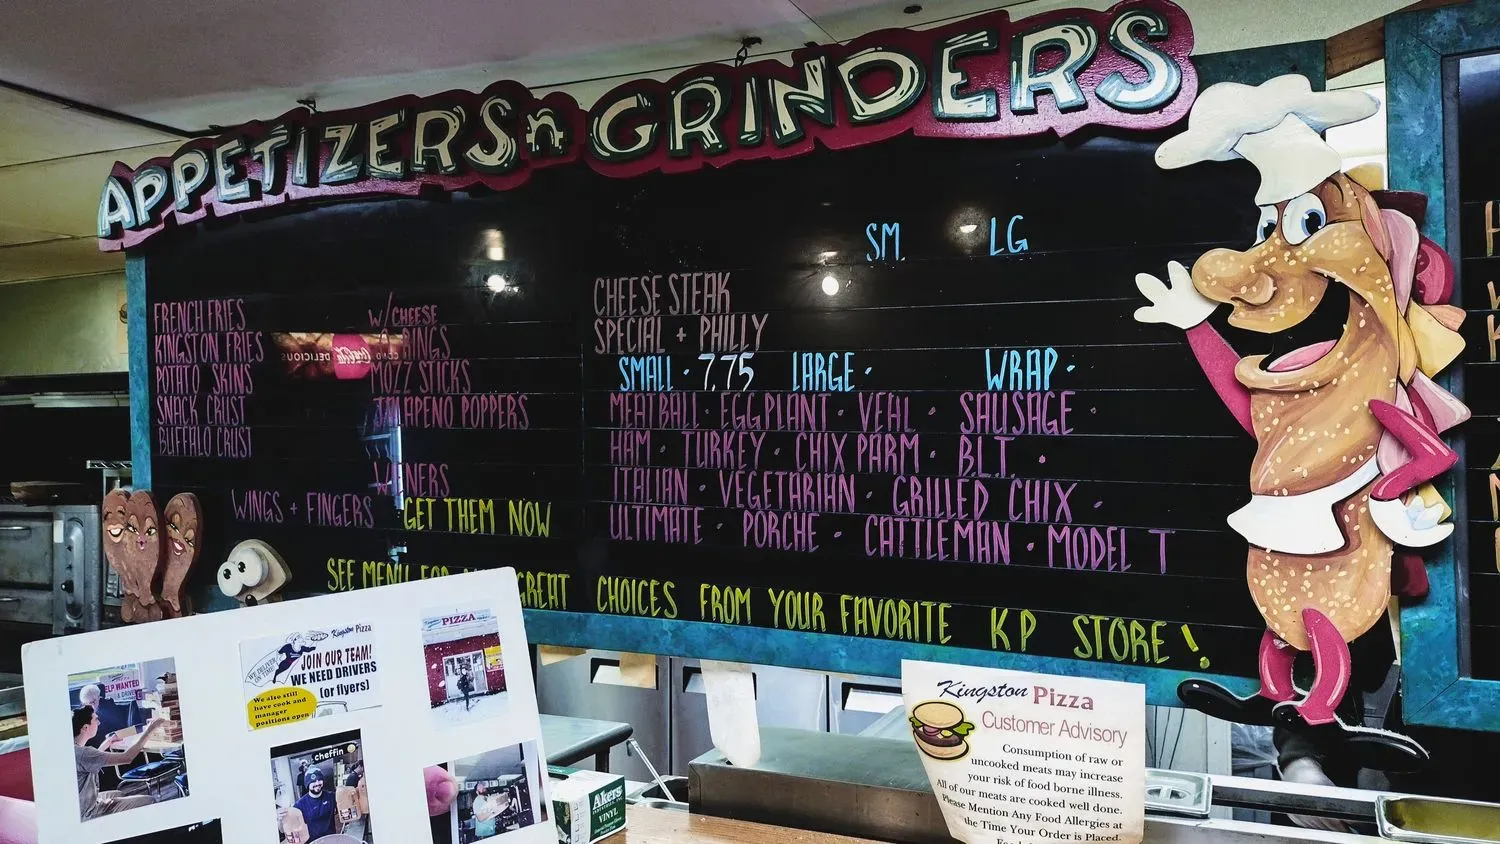 APPETIZERS n GRINDERS
SM. LG
FRENCH FRIES
KINGSTON FRIES
POTATO SKINS
SNACK CRUST
BUFFALO CRUST
W/CHEESE
O RINGS
MOZZ STICKS
JALAPENO POPPERS
WIENERS
WINGS + FINGERS
GET THEM NOW
CHEESE STEAK
SPECIAL + PHILLY
SMALL · 7.75 LARGE · WRAP ·
MEATBALL · EGGPLANT · VEAL · SAUSAGE ·
HAM · TURKEY · CHIX PARM · B.L.T. ·
ITALIAN · VEGETARIAN · GRILLED CHIX ·
ULTIMATE · PORCHE · CATTLEMAN · MODEL T
SEE MENU FOR GREAT CHOICES FROM YOUR FAVORITE KP STORE!
Kingston Pizza
WE DELIVER ON TIME!
JOIN OUR TEAM!
WE NEED DRIVERS
(or flyers)
We also still
have cook and
manager
positions open
PIZZA
HELP WANTED
cheffin
Akers
VINYL
Kingston Pizza
Customer Advisory
Consumption of raw or
uncooked meats may increase
your risk of food borne illness.
All of our meats are cooked well done.
Please Mention Any Food Allergies at
the Time Your Order is Placed.